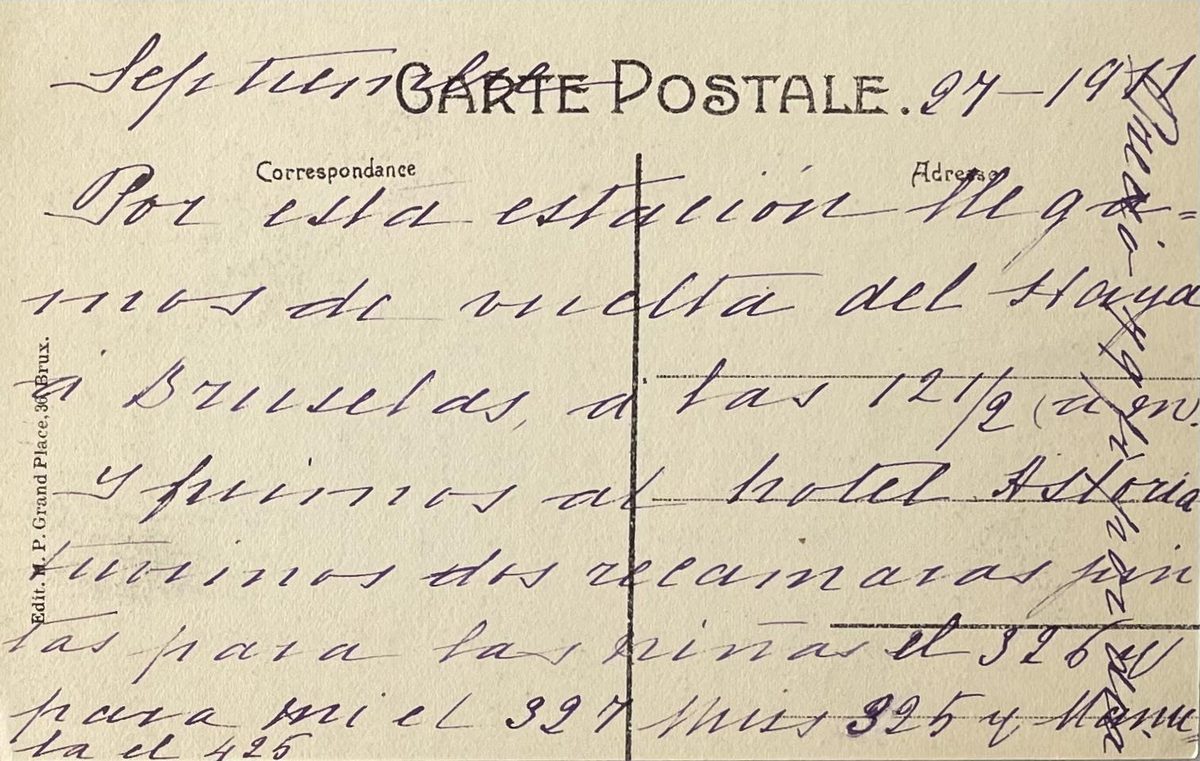 Septiembre 27-1911
CARTE POSTALE.
Correspondance
Adresse
Por esta estación llega=
mos de vuelta del Haya
á Bruselas, a las 12 1/2 (a m.
y fuimos al hotel Astoria
tuvimos dos recamaras jun
tas para las niñas el 326 y
para mi el 327 Miss 325 y Manue
la el 425
Edit. M. P. Grand Place, 36, Brux.
por dia